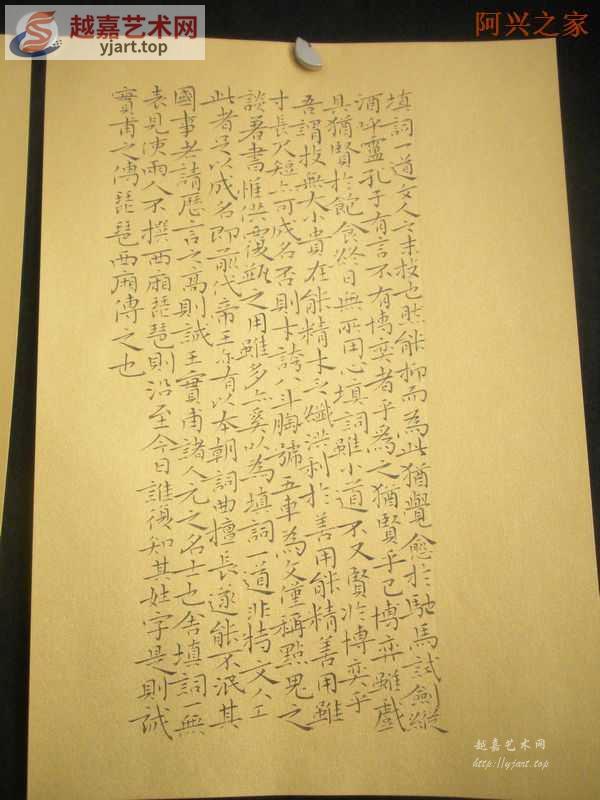 越嘉艺术网
yjart.top
阿兴之家
填詞一道文人之末技也然能抑而為此猶覺愈於馳馬試劍縱
酒呼盧孔子有言不有博奕者乎為之猶賢乎已博弈雖戲
具猶賢於飽食終日無所用心填詞雖小道不又賢於博奕乎
吾謂技無大小貴在能精才乏纖洪利於善用能精善用雖
寸長尺短亦可成名否則才誇八斗胸號五車為文僅稱點鬼之
談著書惟供覆瓿之用雖多亦奚以為填詞一道非特文人工
此者足以成名即前代帝王亦有以本朝詞曲擅長遂能不泯其
國事者請歷言之高則誠王實甫諸人元之名士也舍填詞一無
表見使兩人不撰西廂琵琶則沿至今日誰復知其姓字是則誠
實甫之傳琵琶西廂傳之也
越嘉艺术网
http://yjart.top